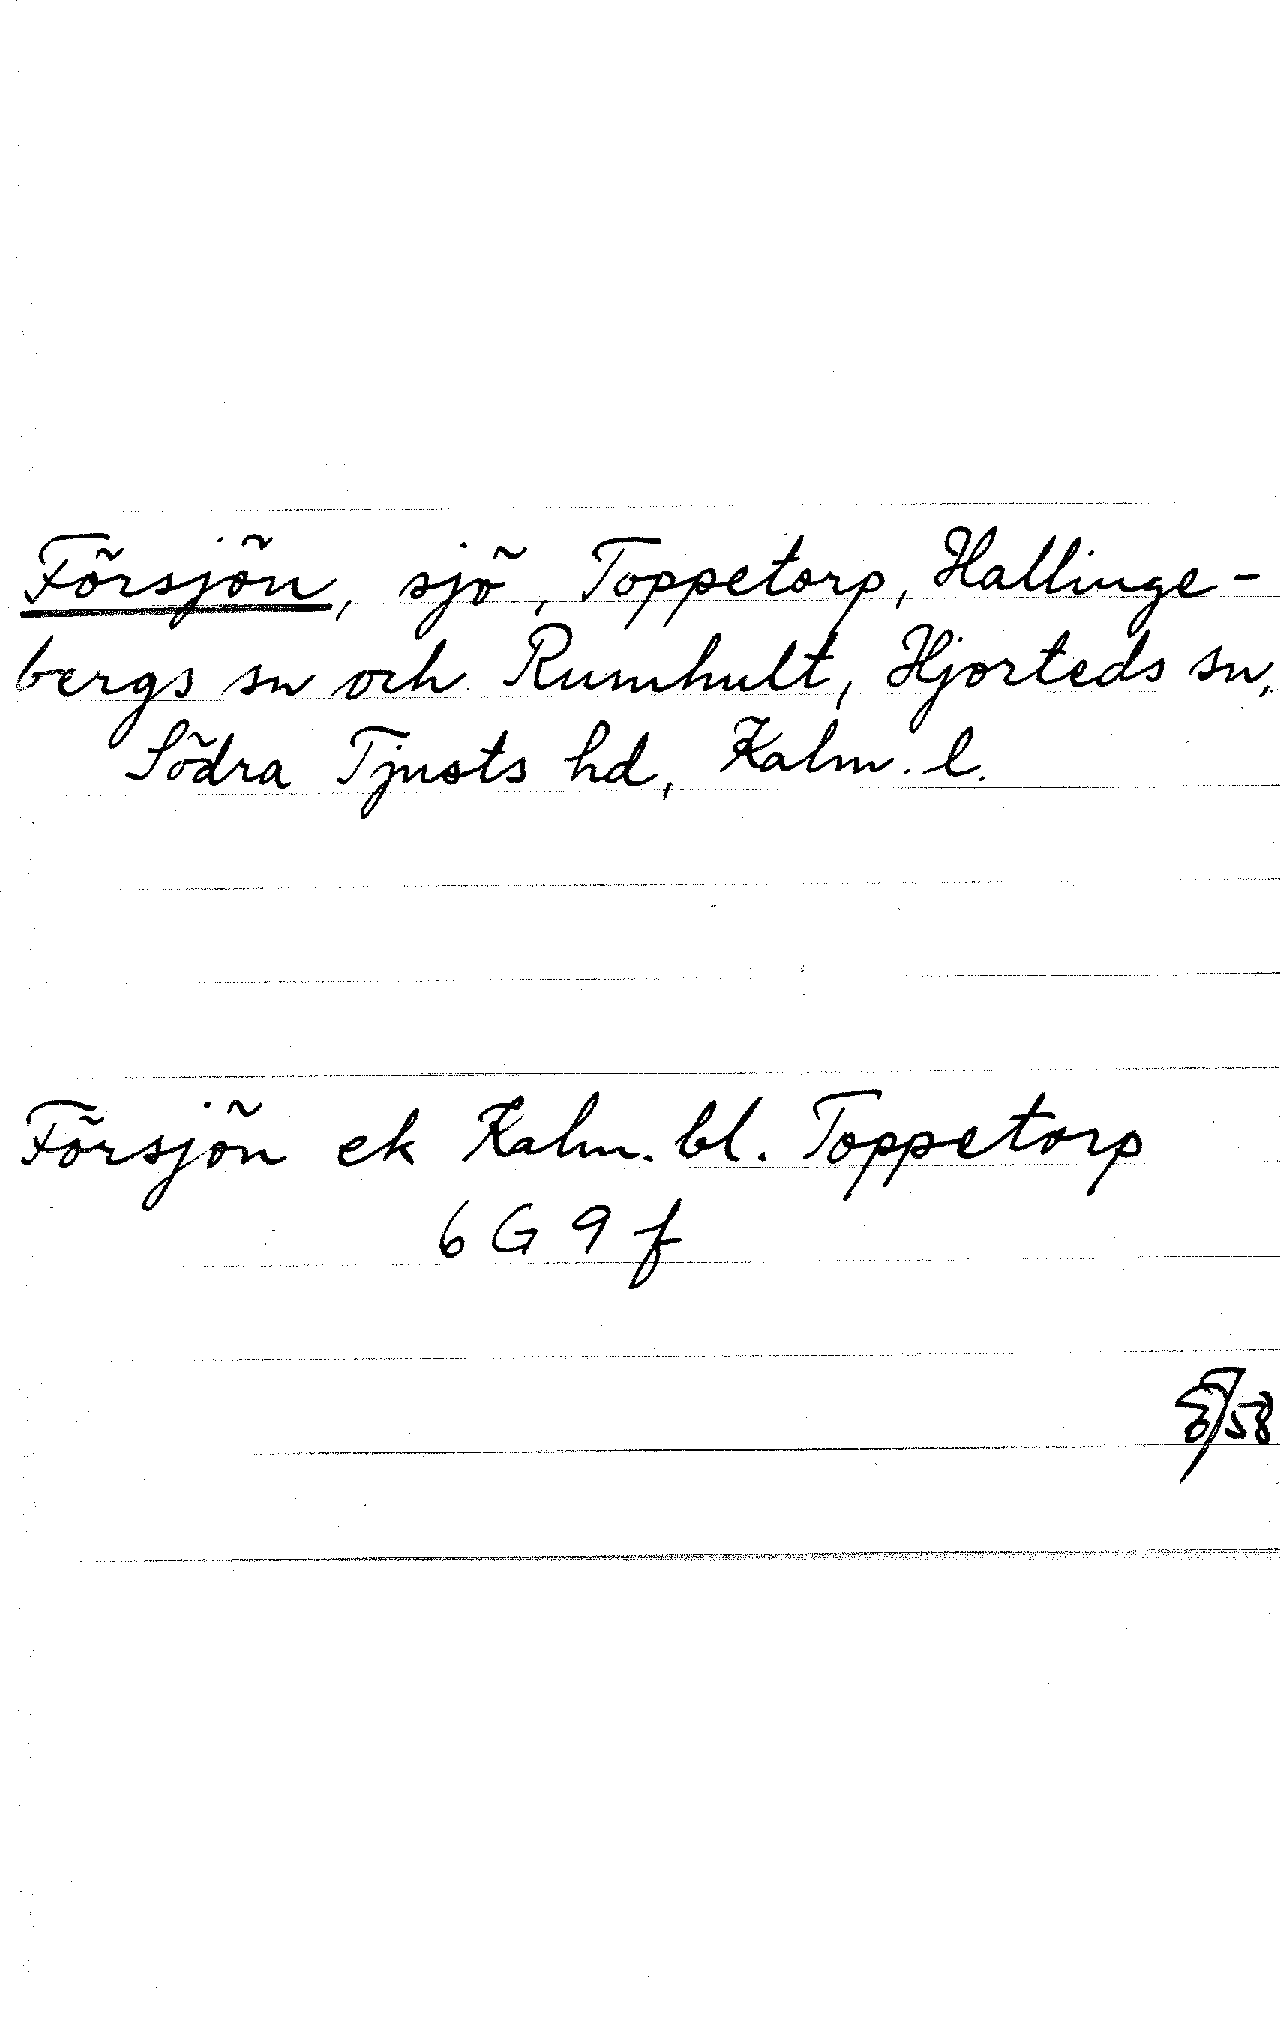 Försjön, sjö, Toppetorp, Hallinge-
bergs sn och Rumhult, Hjorteds sn,
Södra Tjusts hd, Kalm. l.
Försjön ek Kalm. bl. Toppetorp
6 G 9 f
/58